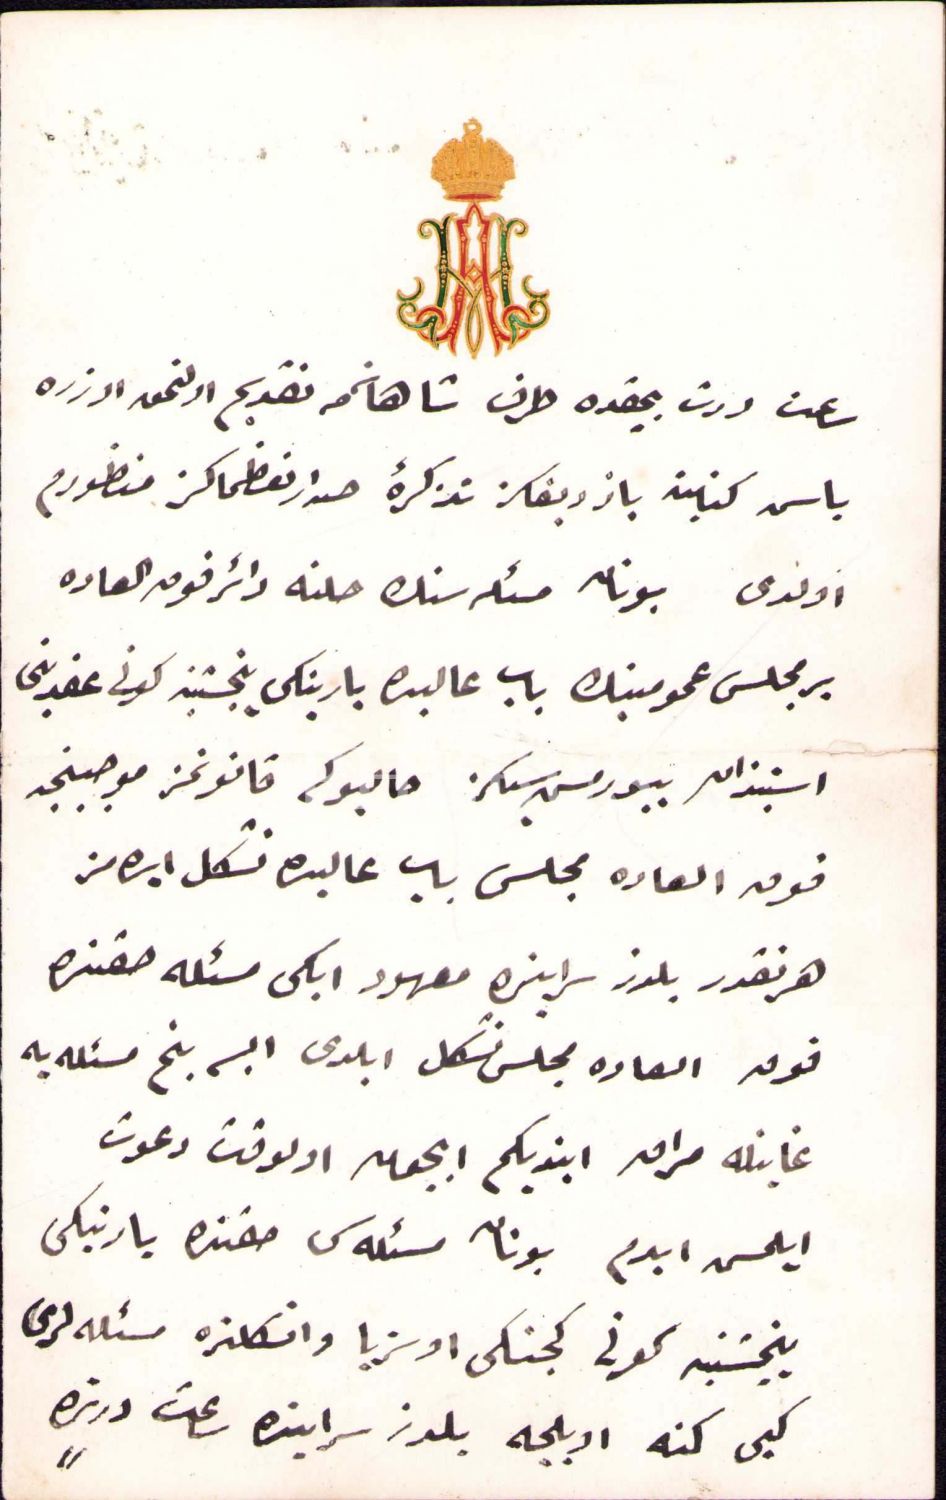 ساعت درت بچقده طرف شاهانه‌مه تقدیم اولنمق اوزره
باش كتابته یازدیغكز تذكرهٔ صدارتعظماكز منظورم
اولدی یونان مسئله‌سنك حلنه دائر فوق العاده
بر مجلس عمومینك باب عالیده یارینكی پنجشنبه كونی عقدینی
استیذان بیورمش‌سكز حالبوكه قانونمز موجبنجه
فوق العاده مجلس باب عالیده تشكل ایده‌مز
هرنقدر یلدز سراینده معهود ایكی مسئله حقنده
فوق العاده مجلس تشكل ایلدی ایسه بنم مسئله‌یه
غایتله مراق ایتدیكم ایچون اولوقت دعوت
ایلمش ایدم یونان مسئله‌سی حقنده یارینكی
پنجشنبه كونی كچنكی اوستریا وانكلتره مسئله‌لری
كبی كنه اویلجه یلدز سراینده ساعت درتده